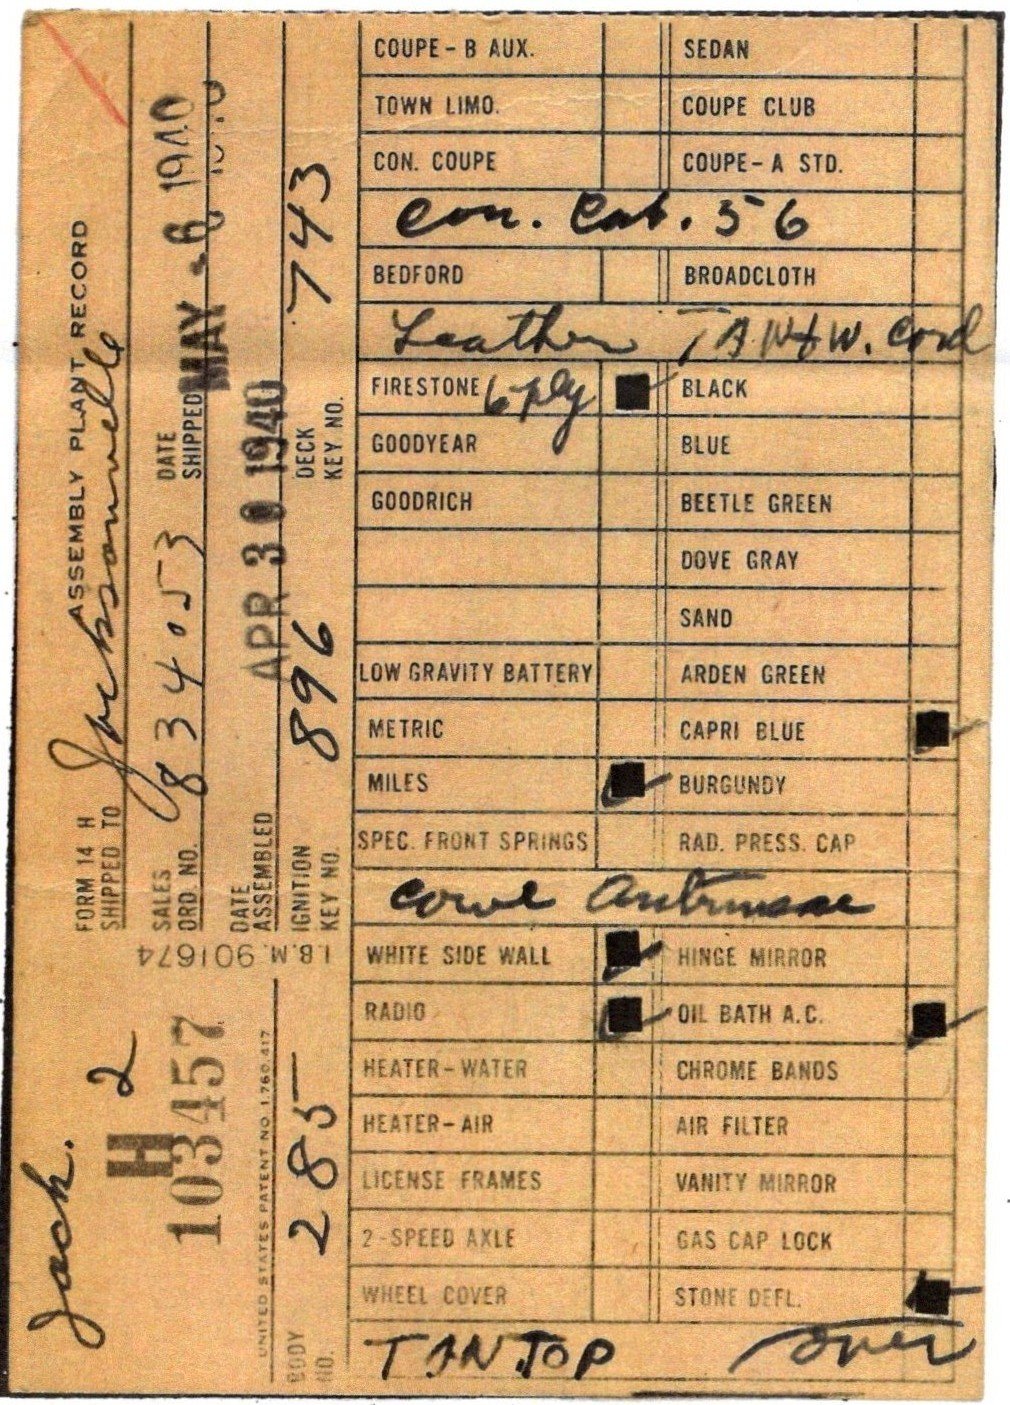 COUPE - B AUX. SEDAN
TOWN LIMO. COUPE CLUB
CON. COUPE COUPE - A STD.
Con. Cab. 56
BEDFORD BROADCLOTH
Leather TAN W. Cord
FIRESTONE 6 ply BLACK
GOODYEAR BLUE
GOODRICH BEETLE GREEN
DOVE GRAY
SAND
LOW GRAVITY BATTERY ARDEN GREEN
METRIC CAPRI BLUE
MILES BURGUNDY
SPEC. FRONT SPRINGS RAD. PRESS. CAP
Cowl
WHITE SIDE WALL HINGE MIRROR
RADIO OIL BATH A.C.
HEATER - WATER CHROME BANDS
HEATER - AIR AIR FILTER
LICENSE FRAMES VANITY MIRROR
2 - SPEED AXLE GAS CAP LOCK
WHEEL COVER STONE DEFL.
TAN TOP over
FORM 14 H ASSEMBLY PLANT RECORD
SHIPPED TO Jacksonville
SALES ORD. NO. 834053 DATE SHIPPED MAY - 6 1940
DATE ASSEMBLED APR 30 1940
IGNITION KEY NO. 896 DECK KEY NO. 743
I.B.M. 901674
Jack.
H 2
103457
UNITED STATES PATENT NO. 1,760,417
BODY NO. 285